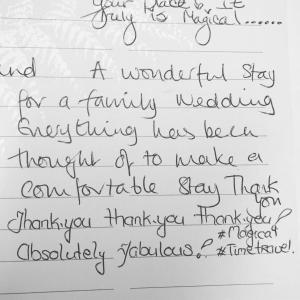 your place, it
truly is Magical......
and A wonderful Stay
for a family Wedding
Everything has been
thought of to make a
Comfortable Stay Thank
you
Thank.you thank.you Thank.you!
#Magical
Absolutely Fabulous! #Timetravel.